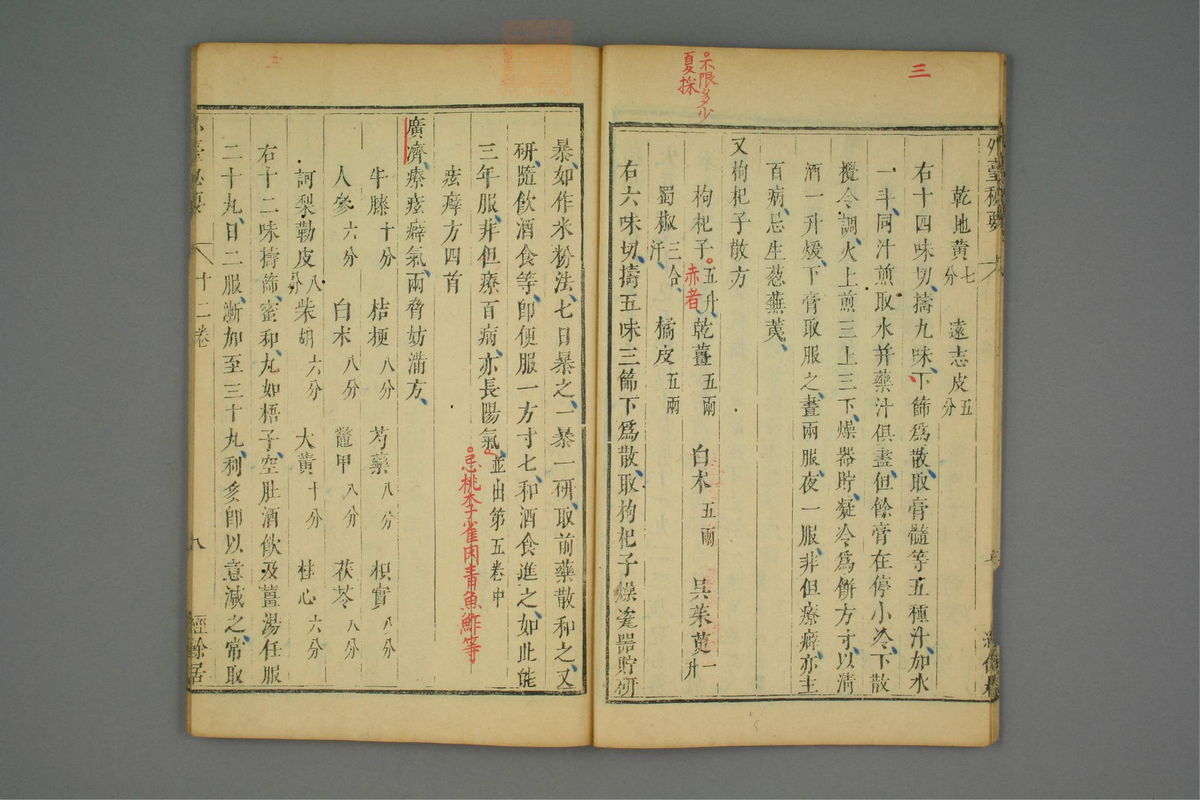 三
不限多少
夏採
乾地黄七分 遠志皮五分
右十四味切擣九味下篩爲散取膏髓等五種汁如水
一斗同汁煎取水并藥汁俱盡但餘膏在停小冷下散
攪令調火上煎三上三下燥器貯凝冷爲餅方寸以清
酒一升煖下膏取服之晝兩服夜一服非但療癖亦主
百病忌生葱蕪荑
又枸杞子散方
枸杞子五升赤者 乾薑五兩 白朮五兩 吳茱萸一升
蜀椒三合汗 橘皮五兩
右六味切擣五味三篩下爲散取枸杞子燥瓷器貯研
暴如作米粉法七日暴之一暴一研取前藥散和之又
研隨飲酒食等即便服一方寸匕和酒食進之如此能
三年服非但療百病亦長陽氣並出第五卷中
忌桃李雀肉青魚鮓等
痃癖方四首
廣濟療痃癖氣兩脅妨滿方
牛膝十分 桔梗八分 芍藥八分 枳實八分
人參六分 白朮八分 鼈甲八分 茯苓八分
訶梨勒皮八分 柴胡六分 大黄十分 桂心六分
右十二味擣篩蜜和丸如梧子空肚酒飲及薑湯任服
二十丸日二服漸加至三十丸利多即以意減之常取
十二卷
八
經餘居